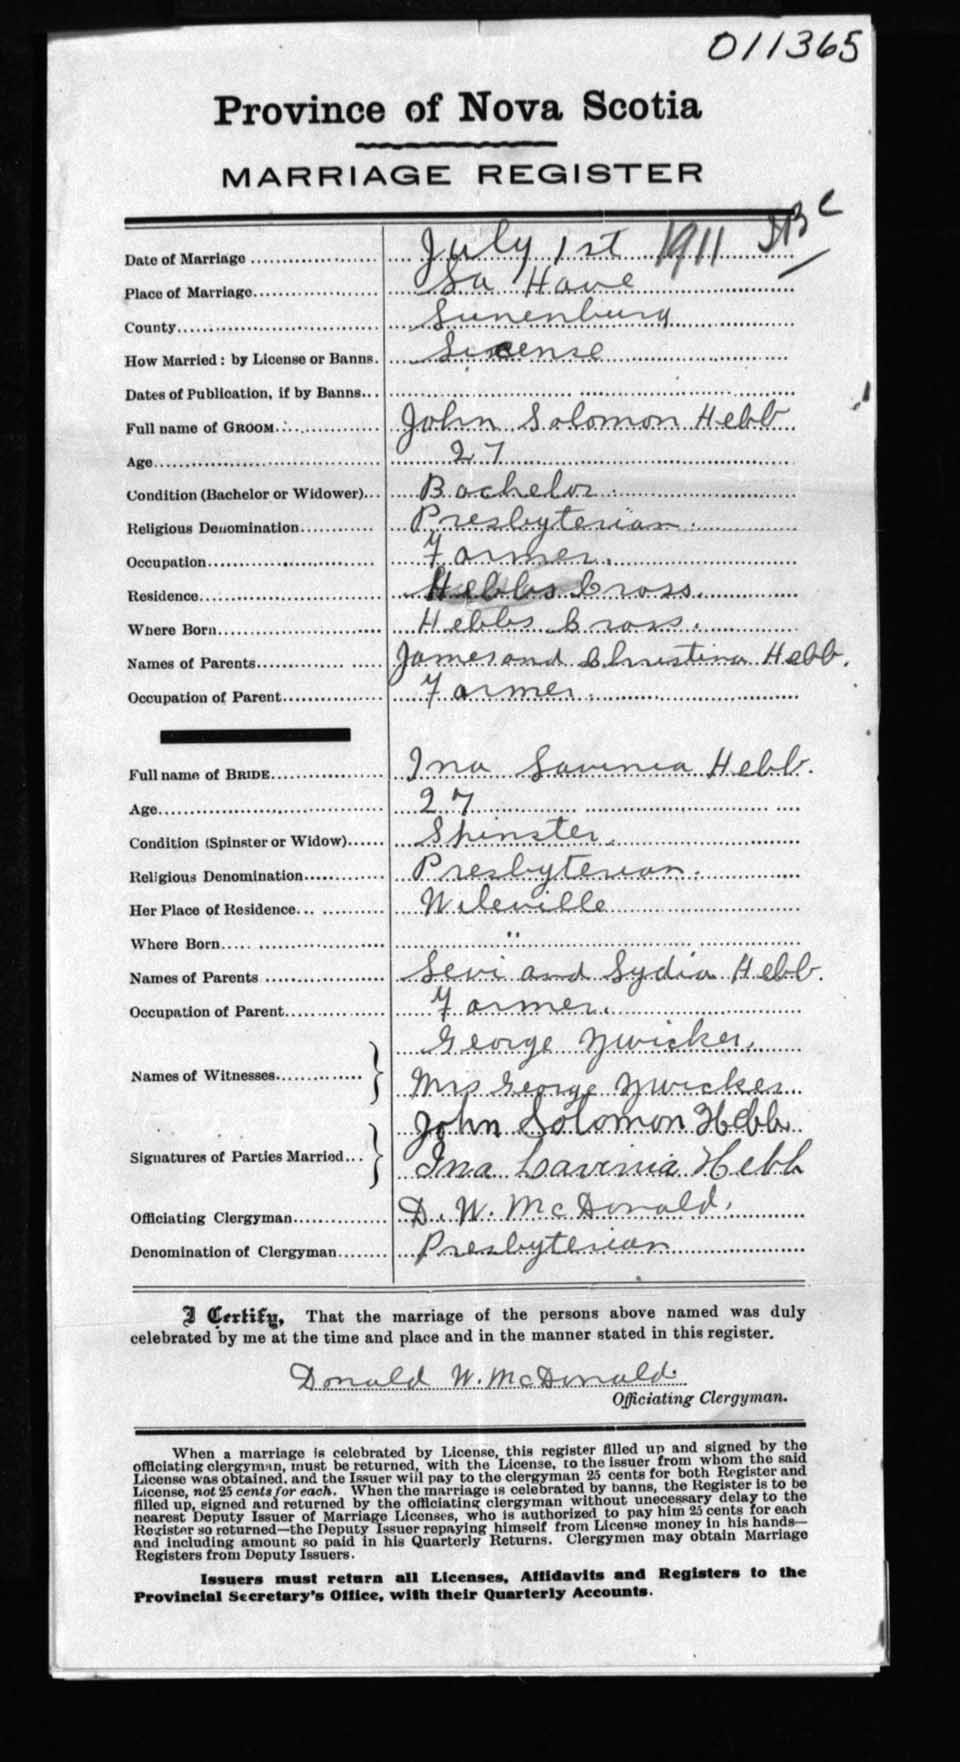 011365
Province of Nova Scotia
MARRIAGE REGISTER
Date of Marriage July 1st 1911
Place of Marriage La Have
County Lunenburg
How Married: by License or Banns. License
Dates of Publication, if by Banns
Full name of GROOM John Solomon Hebb
Age 27
Condition (Bachelor or Widower) Bachelor
Religious Denomination Presbyterian.
Occupation Farmer.
Residence Hebbs Cross.
Where Born Hebbs Cross.
Names of Parents James and Christina Hebb.
Occupation of Parent Farmer.
Full name of BRIDE Ina Lavinia Hebb.
Age 27
Condition (Spinster or Widow) Spinster.
Religious Denomination Presbyterian.
Her Place of Residence Wileville
Where Born "
Names of Parents Levi and Lydia Hebb.
Occupation of Parent Farmer.
George Zwicker.
Names of Witnesses
Mrs George Zwicker
John Solomon Hebb
Signatures of Parties Married
Ina Lavinia Hebb
Officiating Clergyman D. W. McDonald.
Denomination of Clergyman Presbyterian
I Certify, That the marriage of the persons above named was duly
celebrated by me at the time and place and in the manner stated in this register.
Donald W. McDonald
Officiating Clergyman.
When a marriage is celebrated by License, this register filled up and signed by the
officiating clergyman, must be returned, with the License, to the issuer from whom the said
License was obtained, and the Issuer will pay to the clergyman 25 cents for both Register and
License, not 25 cents for each. When the marriage is celebrated by banns, the Register is to be
filled up, signed and returned by the officiating clergyman without unnecessary delay to the
nearest Deputy Issuer of Marriage Licenses, who is authorized to pay him 25 cents for each
Register so returned—the Deputy Issuer repaying himself from License money in his hands—
and including amount so paid in his Quarterly Returns. Clergymen may obtain Marriage
Registers from Deputy Issuers.
Issuers must return all Licenses, Affidavits and Registers to the
Provincial Secretary's Office, with their Quarterly Accounts.